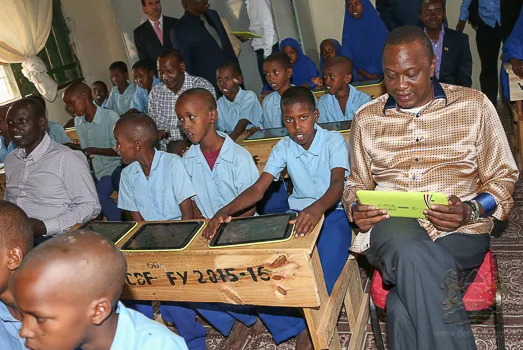 CDF FY 2015-16